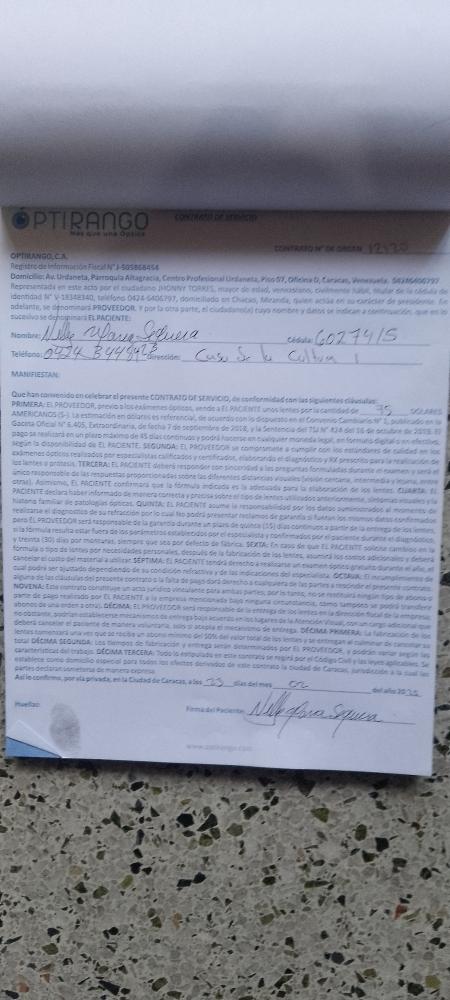 OPTIRANGO
Más que una Óptica
CONTRATO DE SERVICIO
CONTRATO N° DE ORDEN 12120
OPTIRANGO, C.A.
Registro de Información Fiscal N° J-505868454
Domicilio: Av. Urdaneta, Parroquia Altagracia, Centro Profesional Urdaneta, Piso 07, Oficina D, Caracas, Venezuela. 04246406797
Representada en este acto por el ciudadano JHONNY TORRES, mayor de edad, venezolano, civilmente hábil, titular de la cédula de
identidad N° V-18348340, teléfono 0424-6406797, domiciliado en Chacao, Miranda, quien actúa en su carácter de presidente. En
adelante, se denominará PROVEEDOR. Y por la otra parte, el ciudadano(a) cuyo nombre y datos se indican a continuación, que en lo
sucesivo se denominará EL PACIENTE:
Nombre: Nelly Maria Sequera Cédula: 6027415
Teléfono: 0424 Dirección: Casa De la Cultura
MANIFIESTAN:
Que han convenido en celebrar el presente CONTRATO DE SERVICIO, de conformidad con las siguientes cláusulas:
PRIMERA: EL PROVEEDOR, previo a los exámenes ópticos, vende a EL PACIENTE unos lentes por la cantidad de 75 DOLARES
AMERICANOS ($-). La estimación en dólares es referencial, de acuerdo con lo dispuesto en el Convenio Cambiario N° 1, publicado en la
Gaceta Oficial N° 6.405, Extraordinaria, de fecha 7 de septiembre de 2018, y la Sentencia del TSJ N° 824 del 16 de octubre de 2018. El
pago se realizará en un plazo máximo de 45 días continuos y podrá hacerse en cualquier moneda legal, en formato digital o en efectivo,
según la disponibilidad de EL PACIENTE. SEGUNDA: EL PROVEEDOR se compromete a cumplir con los estándares de calidad en los
exámenes ópticos realizados por especialistas calificados y certificados, elaborando el diagnóstico y RX prescrito para la realización de
los lentes o protesis. TERCERA: EL PACIENTE deberá responder con sinceridad a las preguntas formuladas durante el examen y será el
único responsable de las respuestas proporcionadas sobre las diferentes distancias visuales (visión cercana, intermedia y lejana, entre
otras). Asimismo, EL PACIENTE confirmará que la fórmula indicada es la adecuada para la elaboración de los lentes. CUARTA: EL
PACIENTE declara haber informado de manera correcta y precisa sobre el tipo de lentes utilizados anteriormente,
historia familiar de patologías ópticas. QUINTA: EL PACIENTE asume la responsabilidad por los datos suministrados al momento de
realizarse el diagnóstico de su refracción por lo cual No podrá presentar reclamos de garantía si fueran los mismos datos confirmados
pero EL PROVEEDOR será responsable de la garantía durante un plazo de quince (15) días continuos a partir de la entrega de los lentes,
si la fórmula resulta estar fuera de los parámetros establecidos por el especialista y confirmados por el paciente durante el diagnóstico,
y treinta (30) días por monturas, siempre que sea por defecto de fábrica. SEXTA: En caso de que EL PACIENTE solicite cambios en la
fórmula o tipo de lentes por necesidades personales, después de la fabricación de los lentes, asumirá los costos adicionales y deberá
cancelar el costo del material a utilizar. SÉPTIMA: EL PACIENTE tendrá derecho a realizarse un examen óptico gratuito durante el año, el
cual podrá ser ajustado dependiendo de su condición refractiva y de las indicaciones del especialista. OCTAVA: El incumplimiento de
alguna de las cláusulas del presente contrato o la falta de pago dará derecho a cualquiera de las partes a rescindir el presente contrato.
NOVENA: Este contrato constituye un acto jurídico vinculante para ambas partes, por lo tanto, no se restituirá ningún tipo de abono o
parte de pago realizado por EL PACIENTE a la empresa mencionada bajo ninguna circunstancia, como tampoco se podrá transferir
abonos de una orden a otra. DÉCIMA: EL PROVEEDOR será responsable de la entrega de los lentes en la dirección fiscal de la empresa,
no obstante, podrían establecerse mecanismos de entrega bajo acuerdo en los lugares de la Atención Visual, con un cargo adicional que
deberá cancelar el paciente de manera voluntaria, solo si acepta el mecanismo de entrega. DÉCIMA PRIMERA: La fabricación de los
lentes comenzará una vez que se reciba un abono mínimo del 50% del valor total de los lentes
total DÉCIMA SEGUNDA: Los tiempos de fabricación y entrega serán determinados por EL PROVEEDOR, y podrán variar según las
características del trabajo. DÉCIMA TERCERA: Todo lo estipulado en este contrato se regirá por el Código Civil y las leyes aplicables. Se
establece como domicilio especial para todos los efectos derivados de este contrato la ciudad de Caracas, jurisdicción a la cual las
partes declaran someterse de manera expresa.
Así lo confirmo, por vía privada, en la Ciudad de Caracas, a los 23 días del mes 02 del año 2025
Huellas:
Firma del Paciente: Nelly Maria Sequera
www.optirango.com